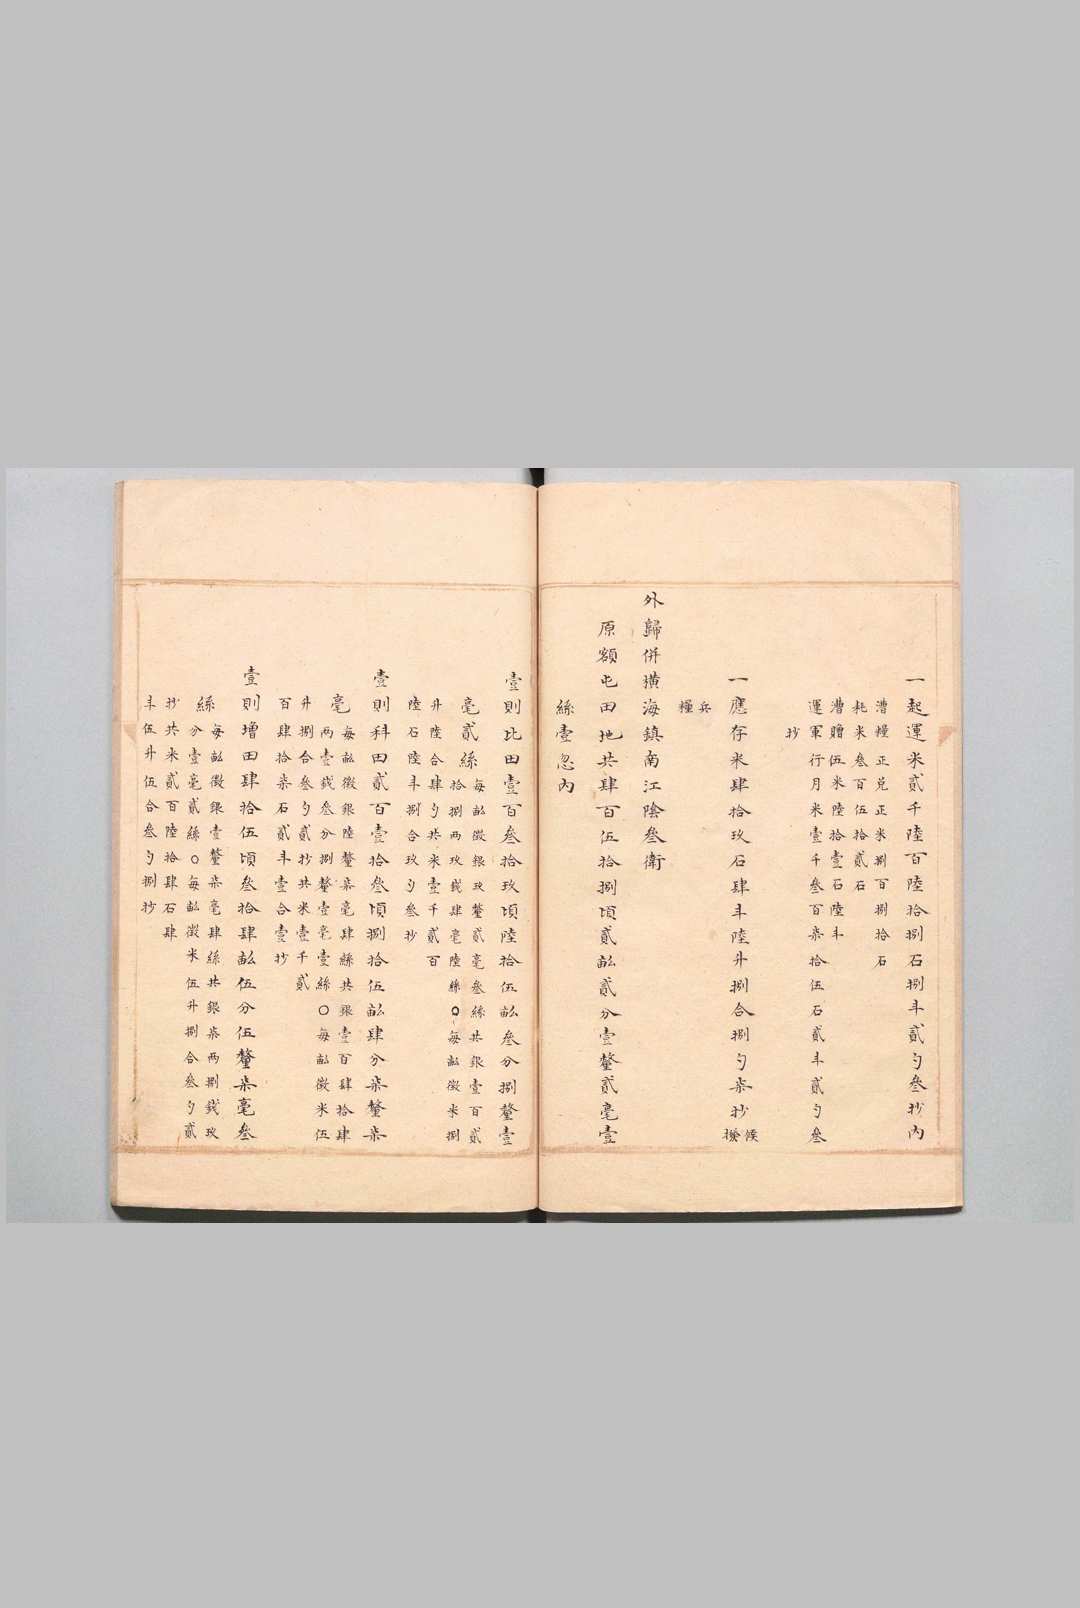 一起運米貳千陸百陸拾捌石捌斗貳勺叁抄內
漕糧正兌正米捌百捌拾石
耗米叁百伍拾貳石
漕贈伍米陸拾壹石陸斗
運軍行月米壹千叁百柒拾伍石貳斗貳勺叁
抄
一應存米肆拾玖石肆斗陸升捌合捌勺柒抄
候
撥
兵
糧
外歸併橫海鎮南江陰叁衛
原額屯田地共肆百伍拾捌頃貳畝貳分壹釐貳毫壹
絲壹忽內
壹則比田壹百叁拾玖頃陸拾伍畝叁分捌釐壹
毫貳絲
每畝徵銀玖釐貳毫叁絲共銀壹百貳
拾捌兩玖錢肆毫陸絲〇每畝徵米捌
升陸合肆勺共米壹千貳百
陸石陸斗捌合玖勺叁抄
壹則科田貳百壹拾叁頃捌拾伍畝肆分柒釐柒
毫
每畝徵銀陸釐柒毫肆絲共銀壹百肆拾肆
兩壹錢叁分捌釐壹毫壹絲〇每畝徵米伍
升捌合叁勺貳抄共米壹千貳
百肆拾柒石貳斗壹合壹抄
壹則增田肆拾伍頃叁拾肆畝伍分伍釐柒毫叁
絲
每畝徵銀壹釐柒毫肆絲共銀柒兩捌錢玖
分壹毫貳絲〇每畝徵米伍升捌合叁勺貳
抄共米貳百陸拾肆石肆
斗伍升伍合叁勺捌抄